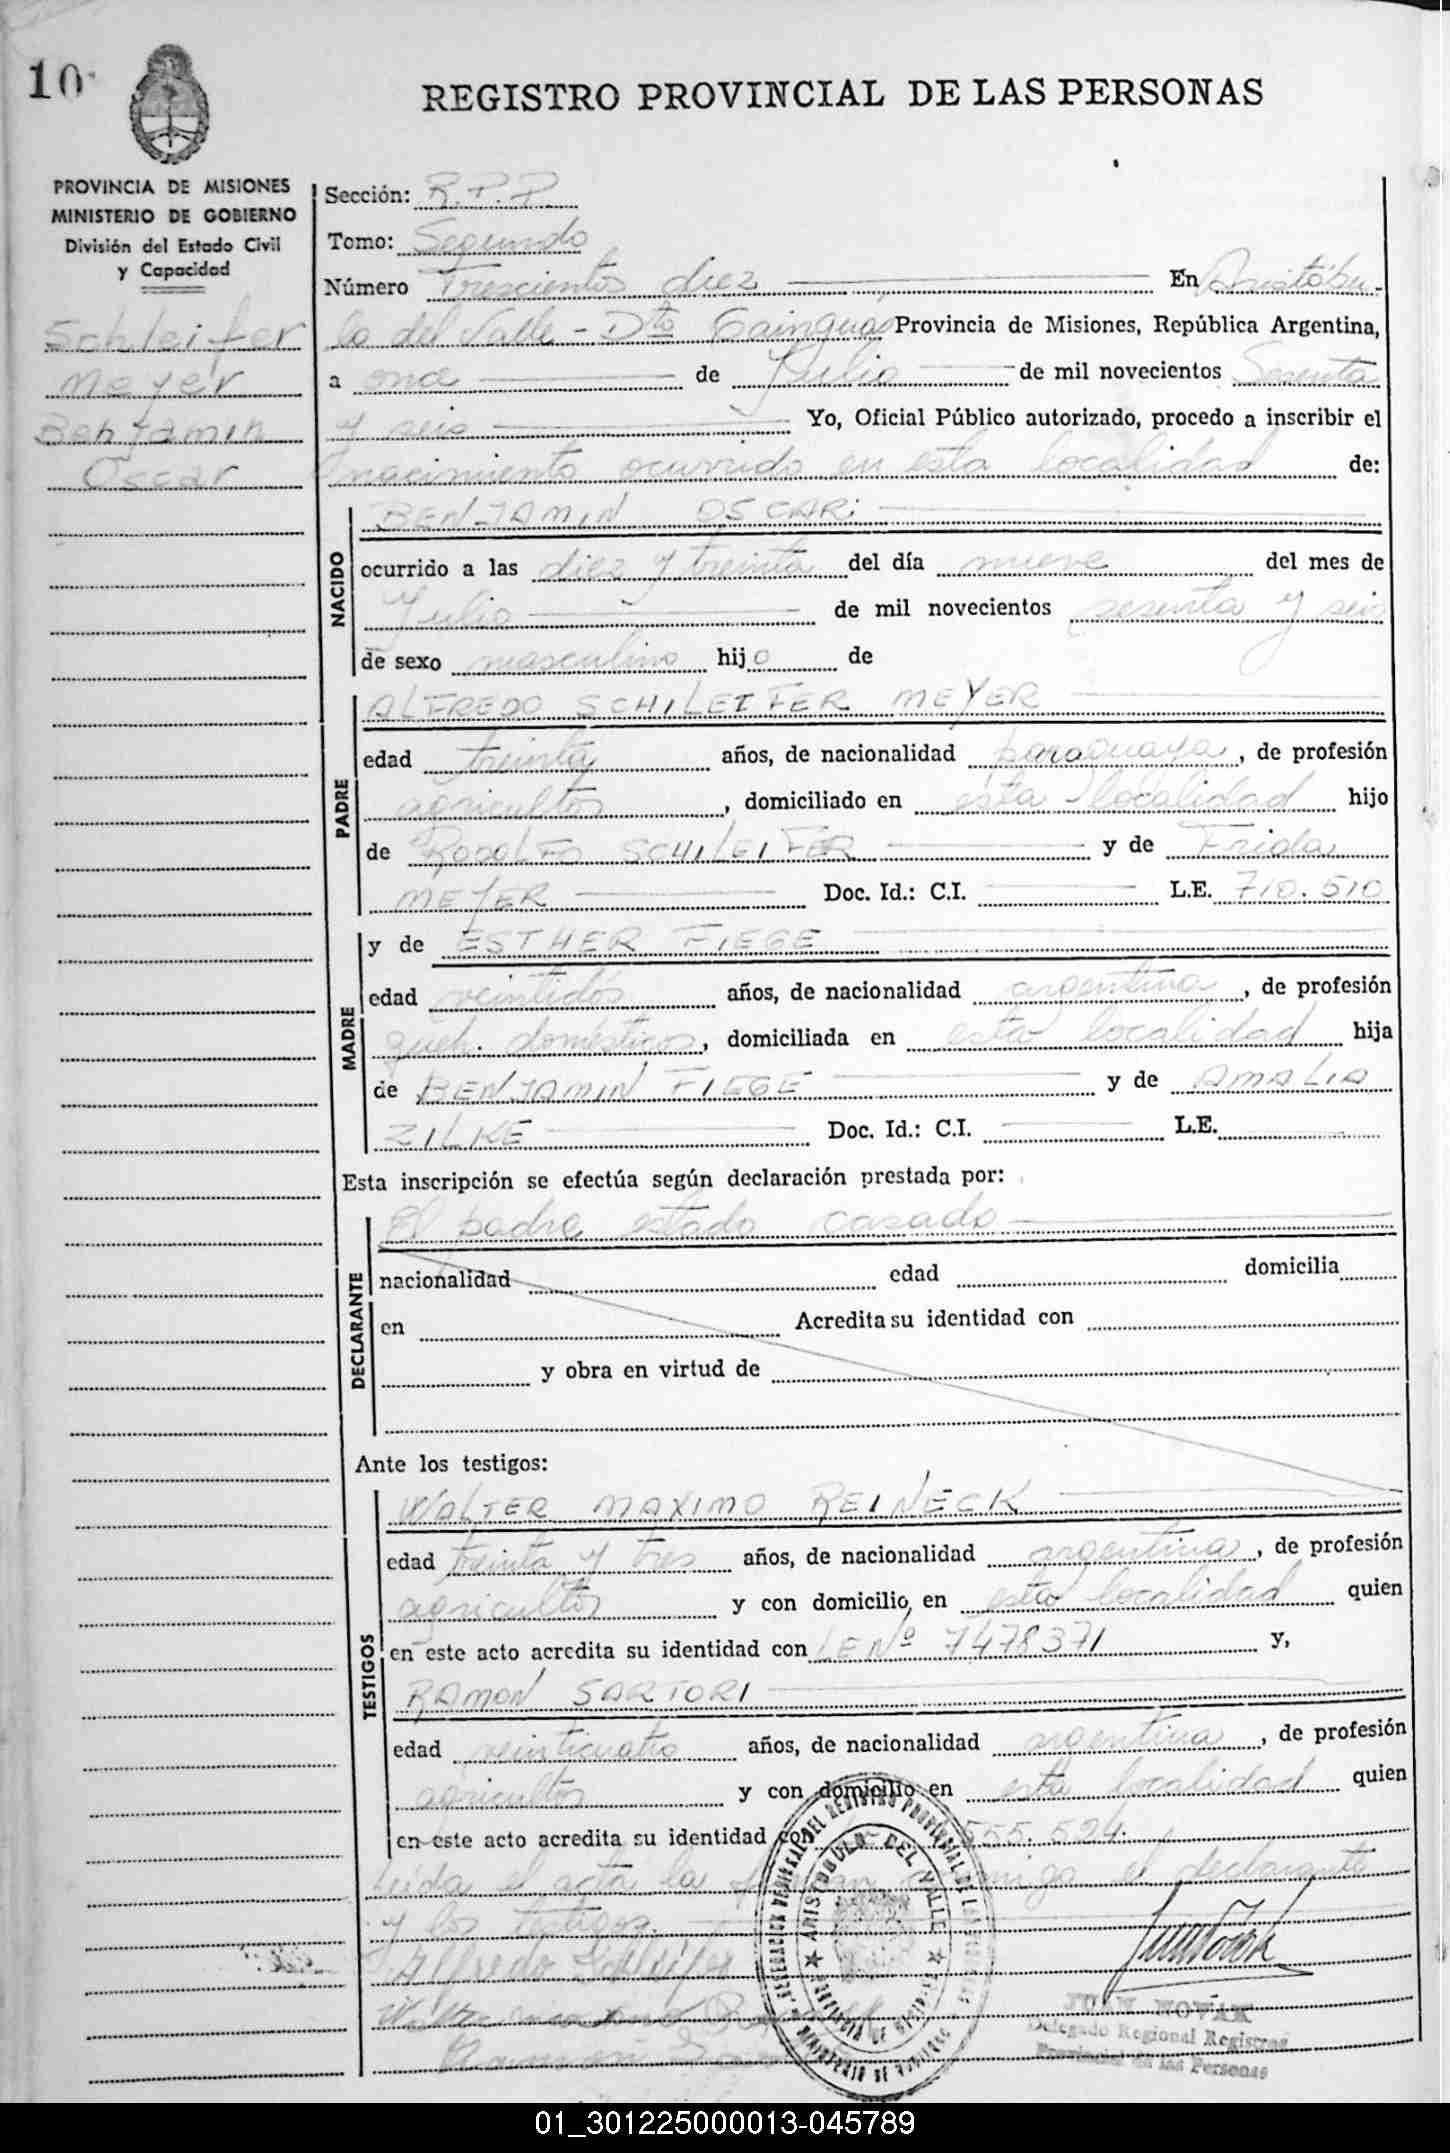 10
REGISTRO PROVINCIAL DE LAS PERSONAS
PROVINCIA DE MISIONES
MINISTERIO DE GOBIERNO
División del Estado Civil
y Capacidad
Schleifer
Meyer
Benjamin
Oscar
Sección: R.P.P.
Tomo: Segundo
Número Trescientos diez En Aristóbu-
lo del Valle - Dto Cainguas Provincia de Misiones, República Argentina,
a once de Julio de mil novecientos Sesenta
y seis Yo, Oficial Público autorizado, procedo a inscribir el
nacimiento ocurrido en esta localidad de:
NACIDO
BENJAMIN OSCAR
ocurrido a las diez y treinta del día nueve del mes de
Julio de mil novecientos sesenta y seis
de sexo masculino hijo de
PADRE
ALFREDO SCHLEIFER MEYER
edad treinta años, de nacionalidad paraguaya, de profesión
agricultor, domiciliado en esta localidad hijo
de RODOLFO SCHLEIFER y de Frida
MEYER Doc. Id.: C.I. L.E. 710.510
MADRE
y de ESTHER FIEGE
edad veintidós años, de nacionalidad argentina, de profesión
queh. domésticos, domiciliada en esta localidad hija
de BENJAMIN FIEGE y de AMALIA
ZILKE Doc. Id.: C.I. L.E.
Esta inscripción se efectúa según declaración prestada por:
DECLARANTE
El padre estado casado
nacionalidad edad domicilia
en Acredita su identidad con
y obra en virtud de
Ante los testigos:
TESTIGOS
WALTER MAXIMO REINECK
edad treinta y tres años, de nacionalidad argentina, de profesión
agricultor y con domicilio en esta localidad quien
en este acto acredita su identidad con LE Nº 7478371 y,
RAMON SARTORI
edad veinticuatro años, de nacionalidad argentina, de profesión
agricultor y con domicilio en esta localidad quien
en este acto acredita su identidad con 555.524.
Leida el acta la firman conmigo el declarante
y los testigos.
Alfredo Schleifer
ARISTOBULO DEL VALLE
JUAN NOVAK
Delegado Regional Registro
Provincial de las Personas
01_301225000013-045789